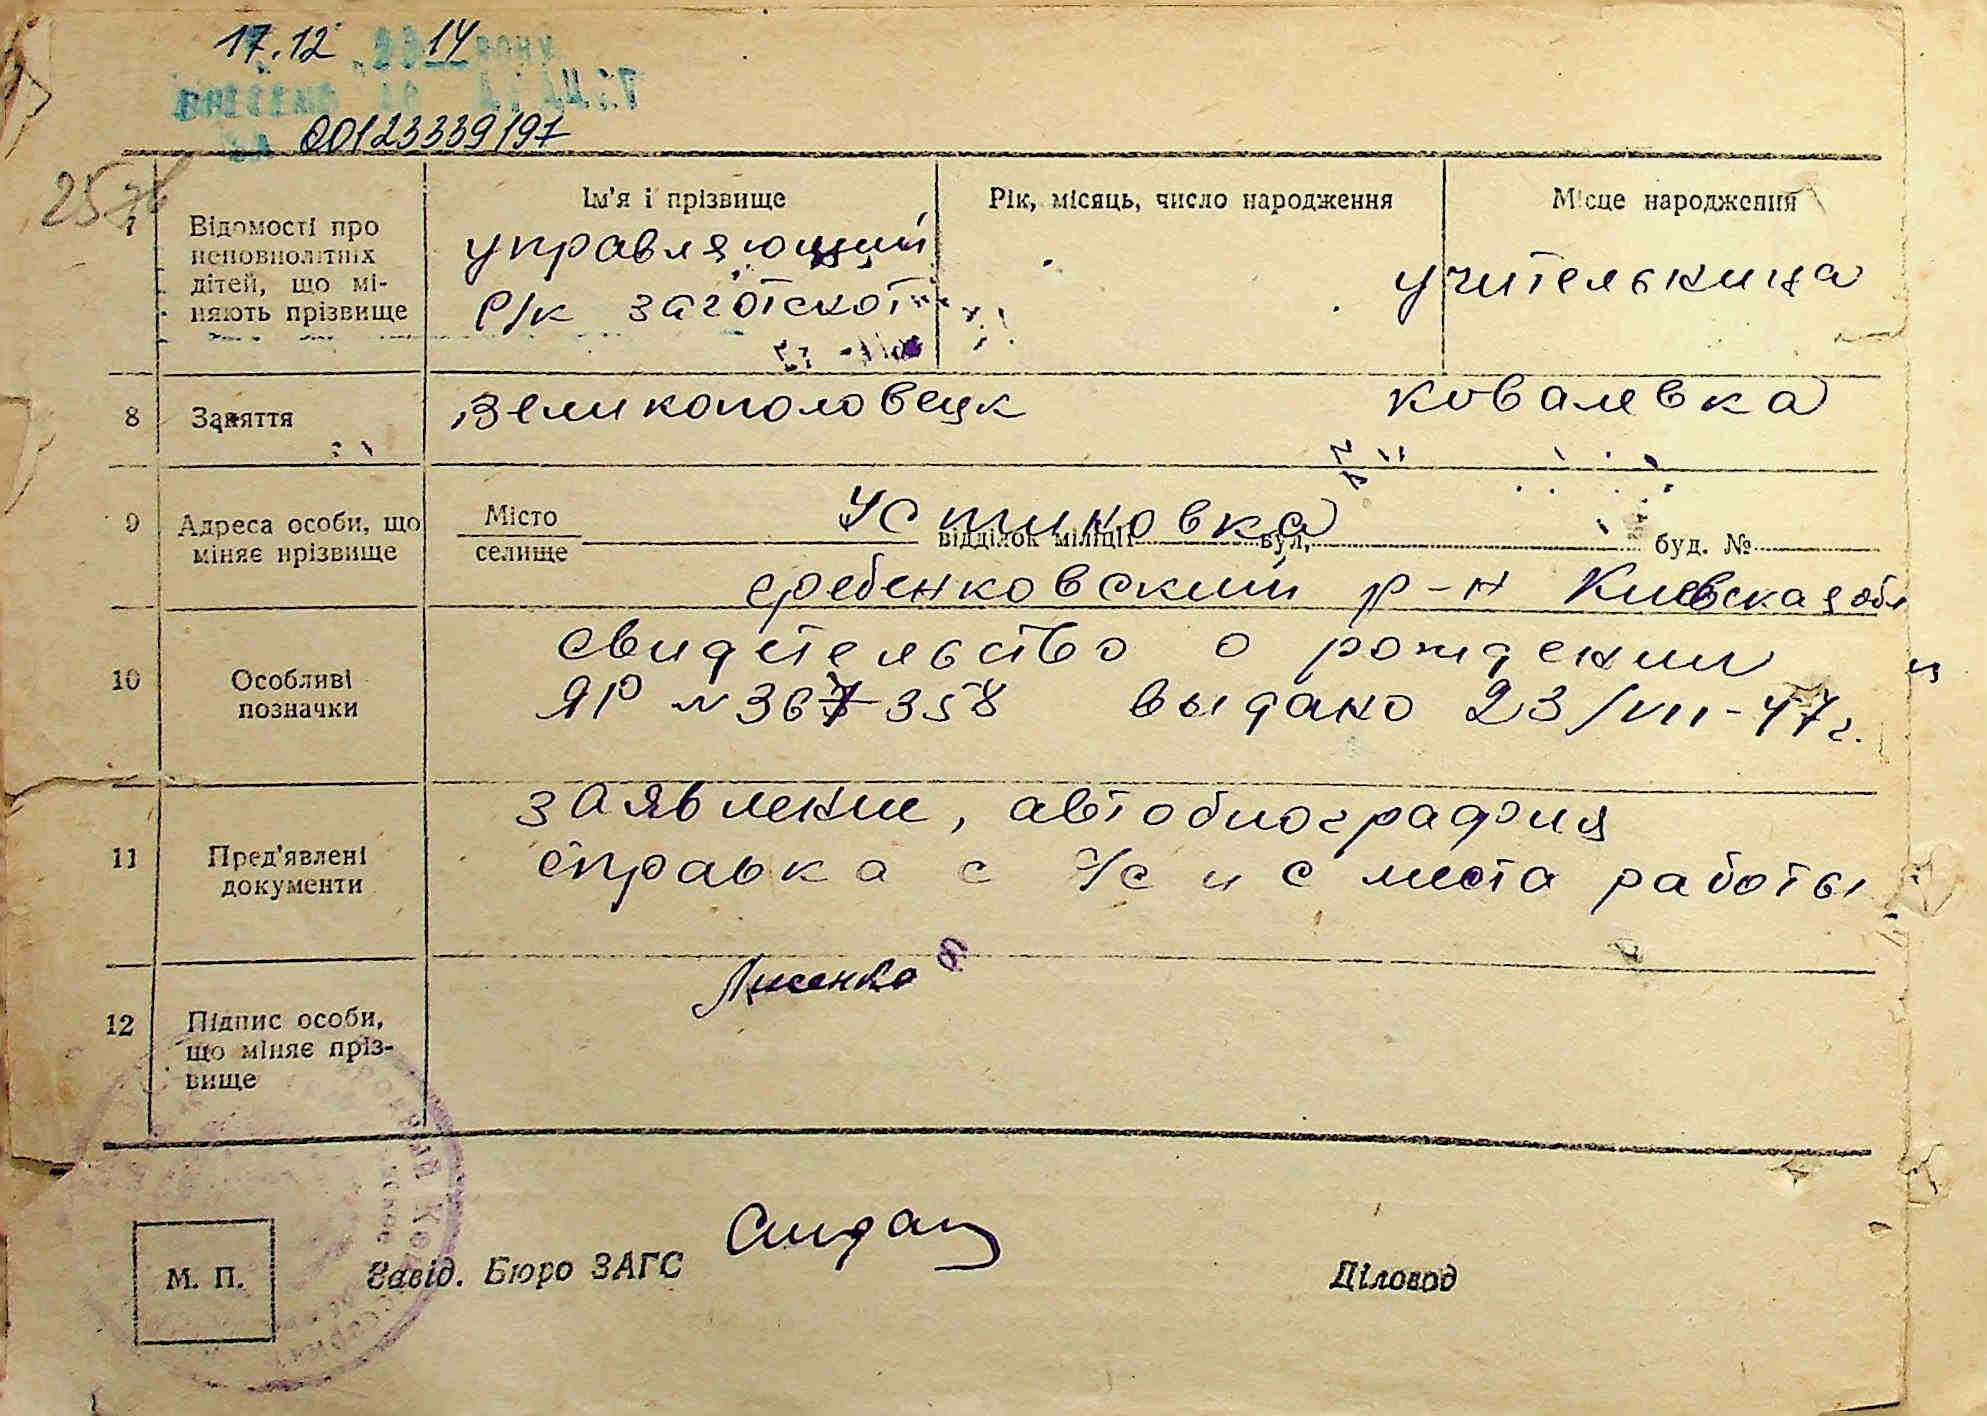 17.12 14
00123339197
25
Ім'я і прізвище Рік, місяць, число народження Місце народження
7 Відомості про неповнолітніх дітей, що міняють прізвище
управляющий учительница
р/к заготскот
8 Заняття великополовецк ковалевка
9 Адреса особи, що міняє прізвище
Місто
селище
Устиновка
відділок міліції вул. буд. №
гребенковский р-н Киевская обл
10 Особливі позначки
свидетельство о рождении
ЯР № 367358 выдано 23/VII-47 г.
11 Пред'явлені документи
заявление, автобиография
справка с с/с и с места работы
12 Підпис особи, що міняє прізвище
Лисенко
М. П. Завід. Бюро ЗАГС Діловод